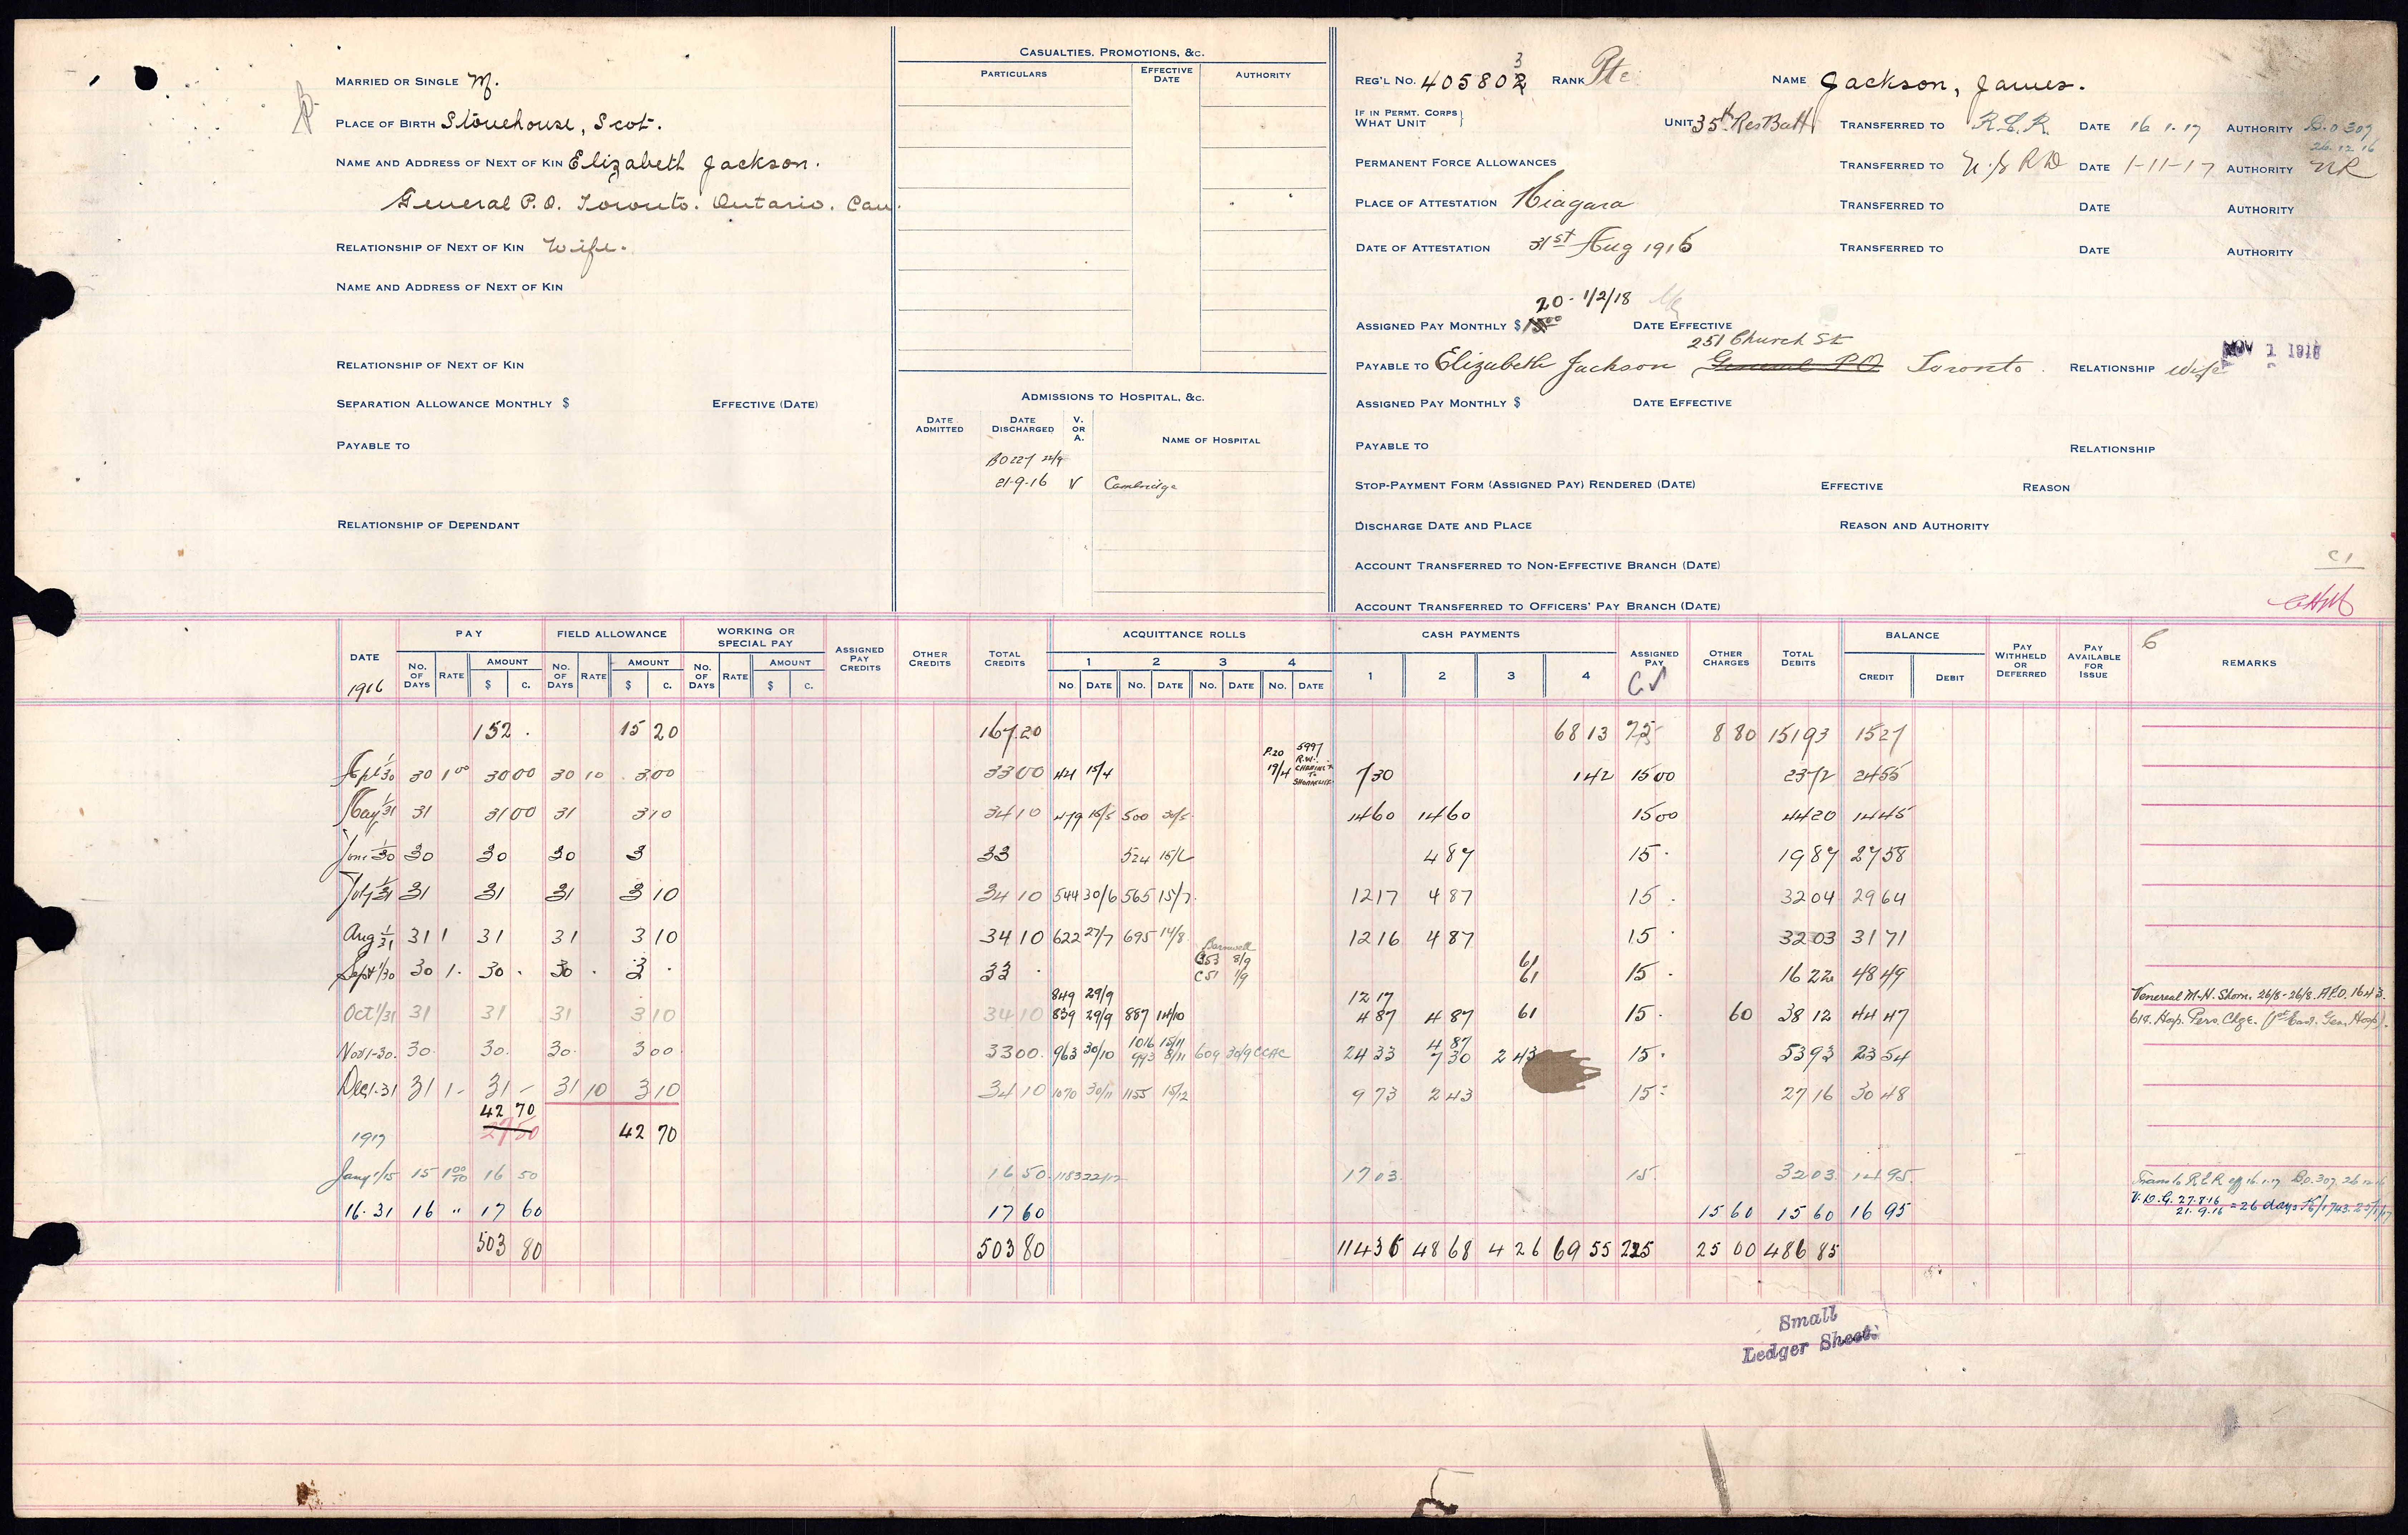 MARRIED OR SINGLE M.
PLACE OF BIRTH Stonehouse, Scot.
NAME AND ADDRESS OF NEXT OF KIN Elizabeth Jackson.
General P.O. Toronto. Ontario. Can.
RELATIONSHIP OF NEXT OF KIN Wife.
NAME AND ADDRESS OF NEXT OF KIN
RELATIONSHIP OF NEXT OF KIN
SEPARATION ALLOWANCE MONTHLY $ EFFECTIVE (DATE)
PAYABLE TO
RELATIONSHIP OF DEPENDANT
CASUALTIES, PROMOTIONS, &C.
PARTICULARS EFFECTIVE DATE AUTHORITY
ADMISSIONS TO HOSPITAL, &C.
DATE ADMITTED DATE DISCHARGED V. OR A. NAME OF HOSPITAL
BO 227 22/9
21-9-16 V Cambridge
3
REG'L NO. 405802 RANK Pte NAME Jackson, James.
IF IN PERMT. CORPS} WHAT UNIT UNIT 35th Res Batt TRANSFERRED TO R.C.R. DATE 16.1.17 AUTHORITY B.O 307
26.12.16
PERMANENT FORCE ALLOWANCES TRANSFERRED TO DATE 1-11-17 AUTHORITY NR
PLACE OF ATTESTATION Niagara TRANSFERRED TO DATE AUTHORITY
DATE OF ATTESTATION 31st Aug 1915 TRANSFERRED TO DATE AUTHORITY
20- 1/2/18
ASSIGNED PAY MONTHLY $ 15.00 DATE EFFECTIVE
251 Church St NOV 1 1918
PAYABLE TO Elizabeth Jackson General P.O. Toronto. RELATIONSHIP Wife
ASSIGNED PAY MONTHLY $ DATE EFFECTIVE
PAYABLE TO RELATIONSHIP
STOP-PAYMENT FORM (ASSIGNED PAY) RENDERED (DATE) EFFECTIVE REASON
DISCHARGE DATE AND PLACE REASON AND AUTHORITY
ACCOUNT TRANSFERRED TO NON-EFFECTIVE BRANCH (DATE) C1
ACCOUNT TRANSFERRED TO OFFICERS' PAY BRANCH (DATE)
DATE PAY FIELD ALLOWANCE WORKING OR SPECIAL PAY ASSIGNED PAY CREDITS OTHER CREDITS TOTAL CREDITS ACQUITTANCE ROLLS CASH PAYMENTS ASSIGNED PAY OTHER CHARGES TOTAL DEBITS BALANCE PAY WITHHELD OR DEFERRED PAY AVAILABLE FOR ISSUE 6 REMARKS
NO. OF DAYS RATE AMOUNT NO. OF DAYS RATE AMOUNT NO. OF DAYS RATE AMOUNT 1 2 3 4 1 2 3 4 CREDIT DEBIT
1916 $ C. $ C. $ C. NO. DATE NO. DATE NO. DATE NO. DATE
152. 15 20 167.20 68 13 75 8 80 151 93 15 27
P.20 5997 R.W. CHARING X TO SHORNCLIFFE
Apl 1/30 30 1 00 30 00 30 10 3 00 33 00 44 15/4 19/4 7 30 1 42 15 00 23 72 24 55
May 1/31 31 31 00 31 3 10 34 10 479 15/5 500 30/5 14 60 14 60 15 00 44 20 14 45
June 1/30 30 30 30 3 33 524 15/6 4 87 15. 19 87 27 58
July 1/31 31 31 31 3 10 34 10 544 30/6 565 15/7 12 17 4 87 15. 32 04 29 64
Aug 1/31 31 1 31 31 3 10 34 10 622 27/7 695 14/8 12 16 4 87 15. 32 03 31 71
Barnwell
C53 8/9 61
Sept 1/30 30 1. 30. 30. 3. 33. C51 1/9 61 15. 16 22 48 49
849 29/9 12 17 Venereal M.H. Shorn. 26/8-26/8. A.P.O. 1643.
Oct 1/31 31 31 31 3 10 34 10 839 29/9 887 14/10 4 87 4 87 61 15. 60 38 12 44 47 61¢. Hosp. Pers. Chge. (1st East. Gen. Hosp).
1016 15/11 4 87
Nov 1-30. 30. 30. 30. 3 00 33 00. 963 30/10 993 8/11 609 30/9 CCAC 24 33 7 30 2 43 15. 53 93 23 54
Dec 1-31 31 1- 31- 31 10 3 10 34 10 1070 30/11 1155 15/12 9 73 2 43 15: 27 16 30 48
42 70
1917 27 50 42 70
Jany 1/15 15 1 00/10 16 50 16 50 1183 22/12 17 03. 15. 32 03 14 95. Trans to R.C.R. eff 16.1.17 B.O. 307. 26.12.16
V.D.G. 27.8.16
16-31 16 " 17 60 17 60 15 60 15 60 16 95 21.9.16 = 26 days
503 80 503 80 114 36 48 68 4 26 69 55 225 25 00 486 85
Small
Ledger Sheet.